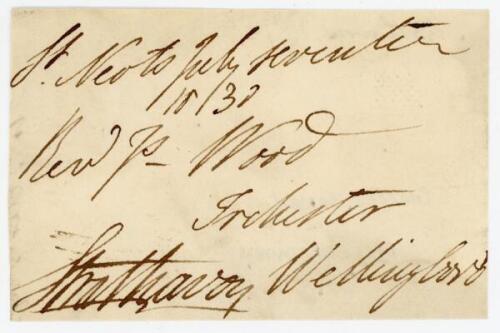 St. Neots July seventeen
1830
Revd P Wood
Irchester
Strathavon Wellingboro